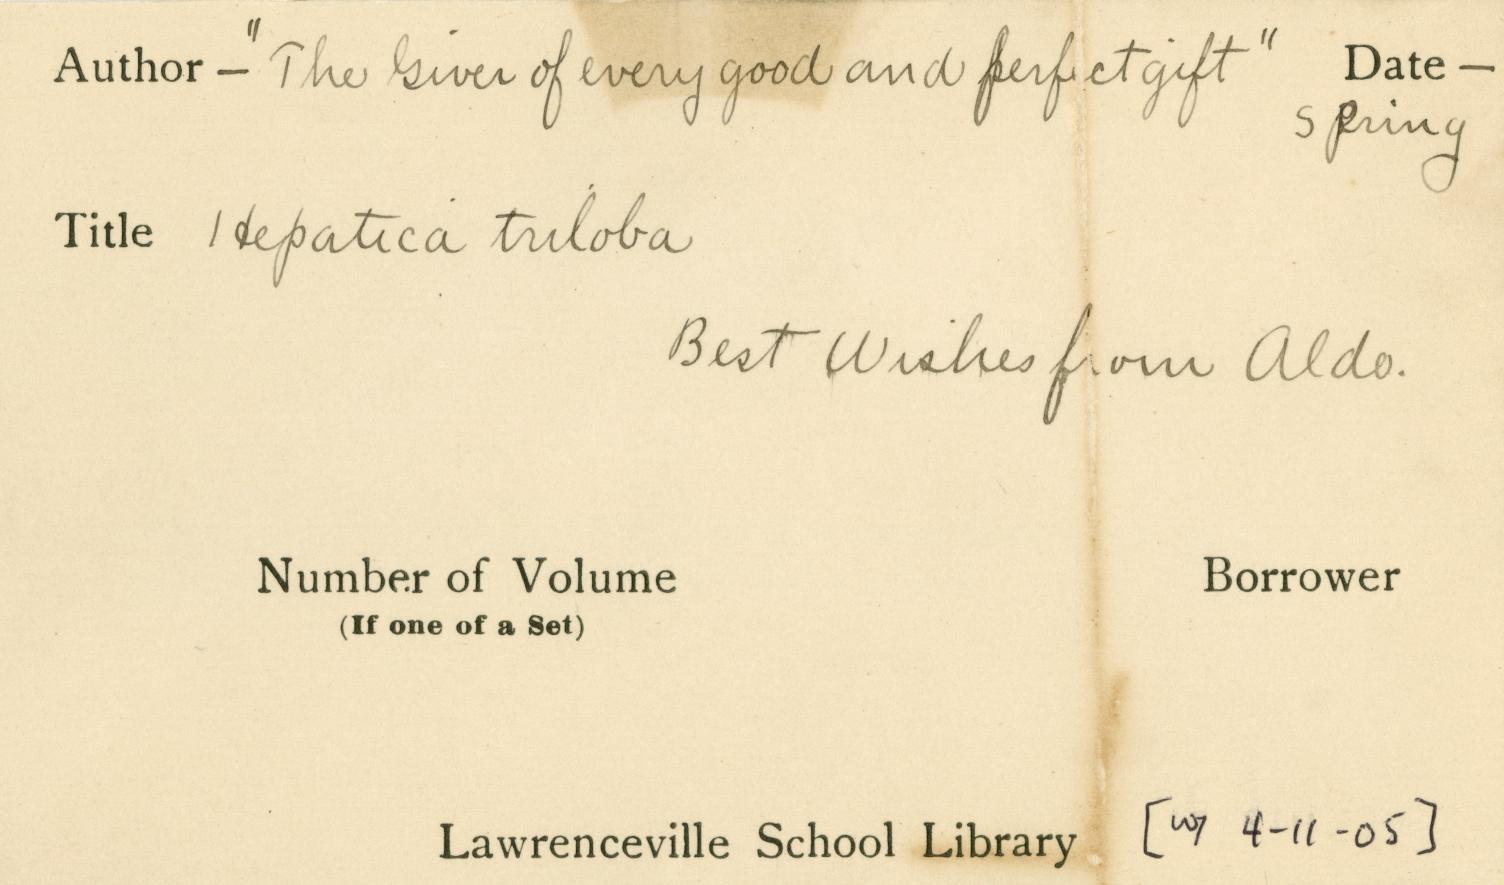 Author – "The Giver of every good and perfect gift" Date –
Spring
Title Hepatica triloba
Best Wishes from Aldo.
Number of Volume Borrower
(If one of a Set)
Lawrenceville School Library [w/ 4-11-05]